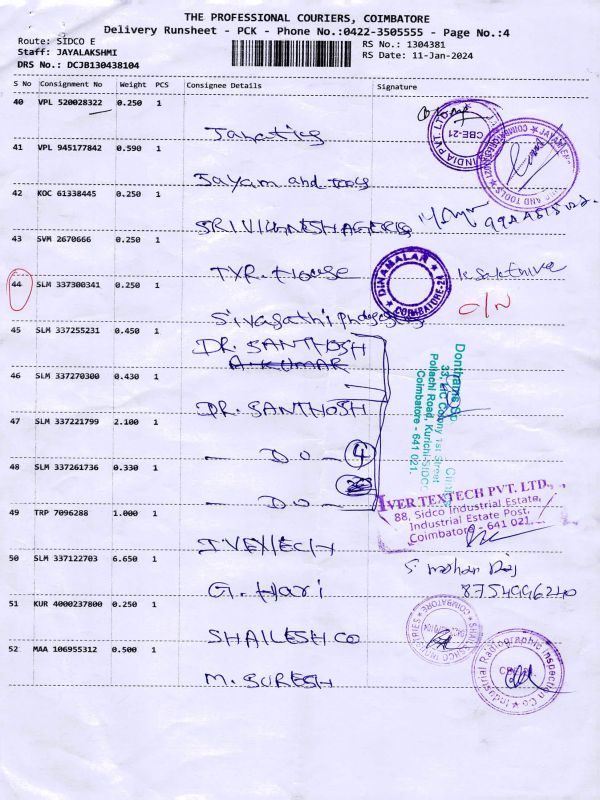 THE PROFESSIONAL COURIERS, COIMBATORE
Delivery Runsheet - PCK - Phone No.:0422-3505555 - Page No.:4
Route: SIDCO E
Staff: JAYALAKSHMI
DRS No.: DCJB130438104
RS No.: 1304381
RS Date: 11-Jan-2024
S No Consignment No Weight PCS Consignee Details Signature
40 VPL 520028322 0.250 1
Janatics
CBE-21
INDIA PVT. LTD
41 VPL 945177842 0.590 1
Jayam and tools
AND TOOLS
COIMBATORE
42 KOC 61338445 0.250 1
SRI VIGNESH AGENCIES
43 SVM 2670666 0.250 1
TYR. House
DINAMALAR
COIMBATORE
44 SLM 337300341 0.250 1
O/N
Sivasathi
45 SLM 337255231 0.450 1
DR. SANTHOSH
A. KUMAR
46 SLM 337270300 0.430 1
DR. SANTHOSH
33-LIC Colony 1st Street
Pollachi Road, Kurichi-SIDCO
Coimbatore - 641 021.
47 SLM 337221799 2.100 1
- DO - 4
48 SLM 337261736 0.330 1
- DO -
IVER TEXTECH PVT. LTD.,
88, Sidco Industrial Estate,
Industrial Estate Post,
Coimbatore - 641 021.
49 TRP 7096288 1.000 1
50 SLM 337122703 6.650 1
G. Hari
S mohan Raj
8754996240
51 KUR 4000237800 0.250 1
SHAILESH CO
INDUSTRIES
COIMBATORE
52 MAA 106955312 0.500 1
M. SURESH
Industrial Radiographic Inspection Co